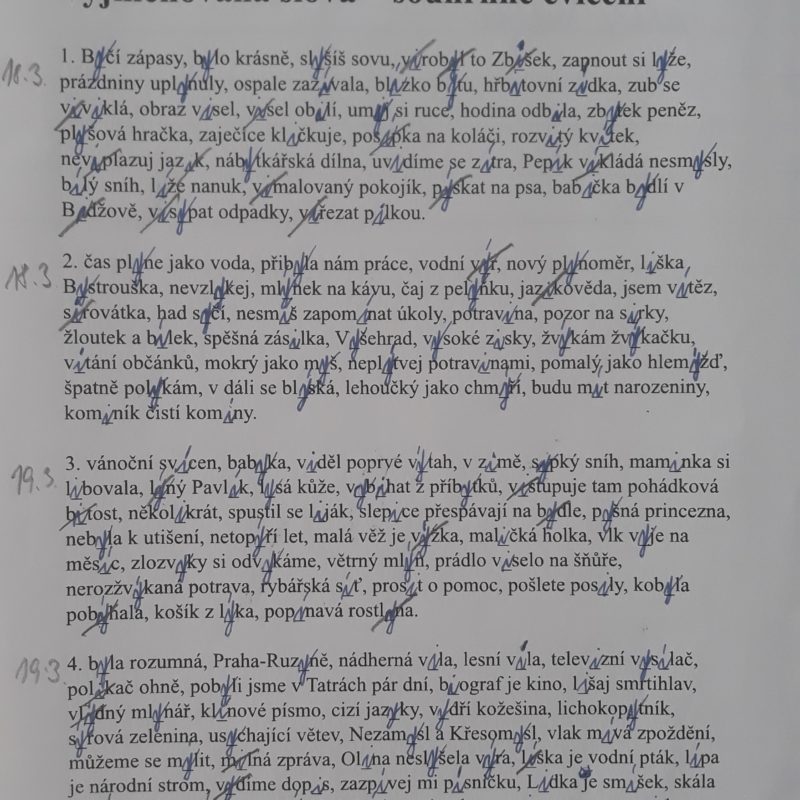 vyjmenovaná slova – souhrnné cvičení
18.3.
1. Býčí zápasy, bylo krásně, slyšíš sovu, vyrobil to Zbyšek, zapnout si lyže,
prázdniny uplynuly, ospale zazívala, blízko bytu, hřbitovní zídka, zub se
viviklá, obraz visel, vysel obilí, umyj si ruce, hodina odbila, zbytek peněz,
plyšová hračka, zaječice kličkuje, posypka na koláči, rozvitý kvítek,
nevyplazuj jazyk, nábytkářská dílna, uvidíme se zítra, Pepík vykládá nesmysly,
bílý sníh, líže nanuk, vymalovaný pokojík, pískat na psa, babička bydlí v
Bydžově, vysypat odpadky, vyřezat pilkou.
18.3
2. čas plyne jako voda, přibyla nám práce, vodní výr, nový plynoměr, liška
Bystrouška, nevzlykej, mlýnek na kávu, čaj z pelyňku, jazykověda, jsem vítěz,
syrovátka, had syčí, nesmíš zapomínat úkoly, potravina, pozor na sirky,
žloutek a bílek, spěšná zásilka, Vyšehrad, vysoké zisky, žvýkám žvýkačku,
vítání občánků, mokrý jako myš, neplýtvej potravinami, pomalý jako hlemýžď,
špatně polykám, v dáli se blýská, lehoučký jako chmýří, budu mít narozeniny,
kominík čistí komíny.
19.3.
3. vánoční svícen, babyka, viděl poprvé výtah, v zimě, sypký sníh, maminka si
libovala, líný Pavlík, lysá kůže, vybíhat z příbytků, vystupuje tam pohádková
bytost, několikrát, spustil se liják, slepice přespávají na bydle, pyšná princezna,
nebyla k utišení, netopýří let, malá věž je vížka, maličká holka, vlk vyje na
měsíc, zlozvyky si odvykáme, větrný mlýn, prádlo viselo na šňůře,
nerozžvýkaná potrava, rybářská síť, prosit o pomoc, pošlete posily, kobyla
pobíhala, košík z lýka, popínavá rostlina.
19.3
4. byla rozumná, Praha-Ruzyně, nádherná vila, lesní víla, televizní vysílač,
polykač ohně, pobyli jsme v Tatrách pár dní, biograf je kino, lišaj smrtihlav,
vlídný mlynář, klínové písmo, cizí jazyky, vydří kožešina, lichokopytník,
syrová zelenina, usychající větev, Nezamysl a Křesomysl, vlak mívá zpoždění,
můžeme se mýlit, mylná zpráva, Olina neslyšela výra, lyska je vodní pták, lípa
je národní strom, vydíme dopis, zazpívej mi písničku, Lidka je smíšek, skála